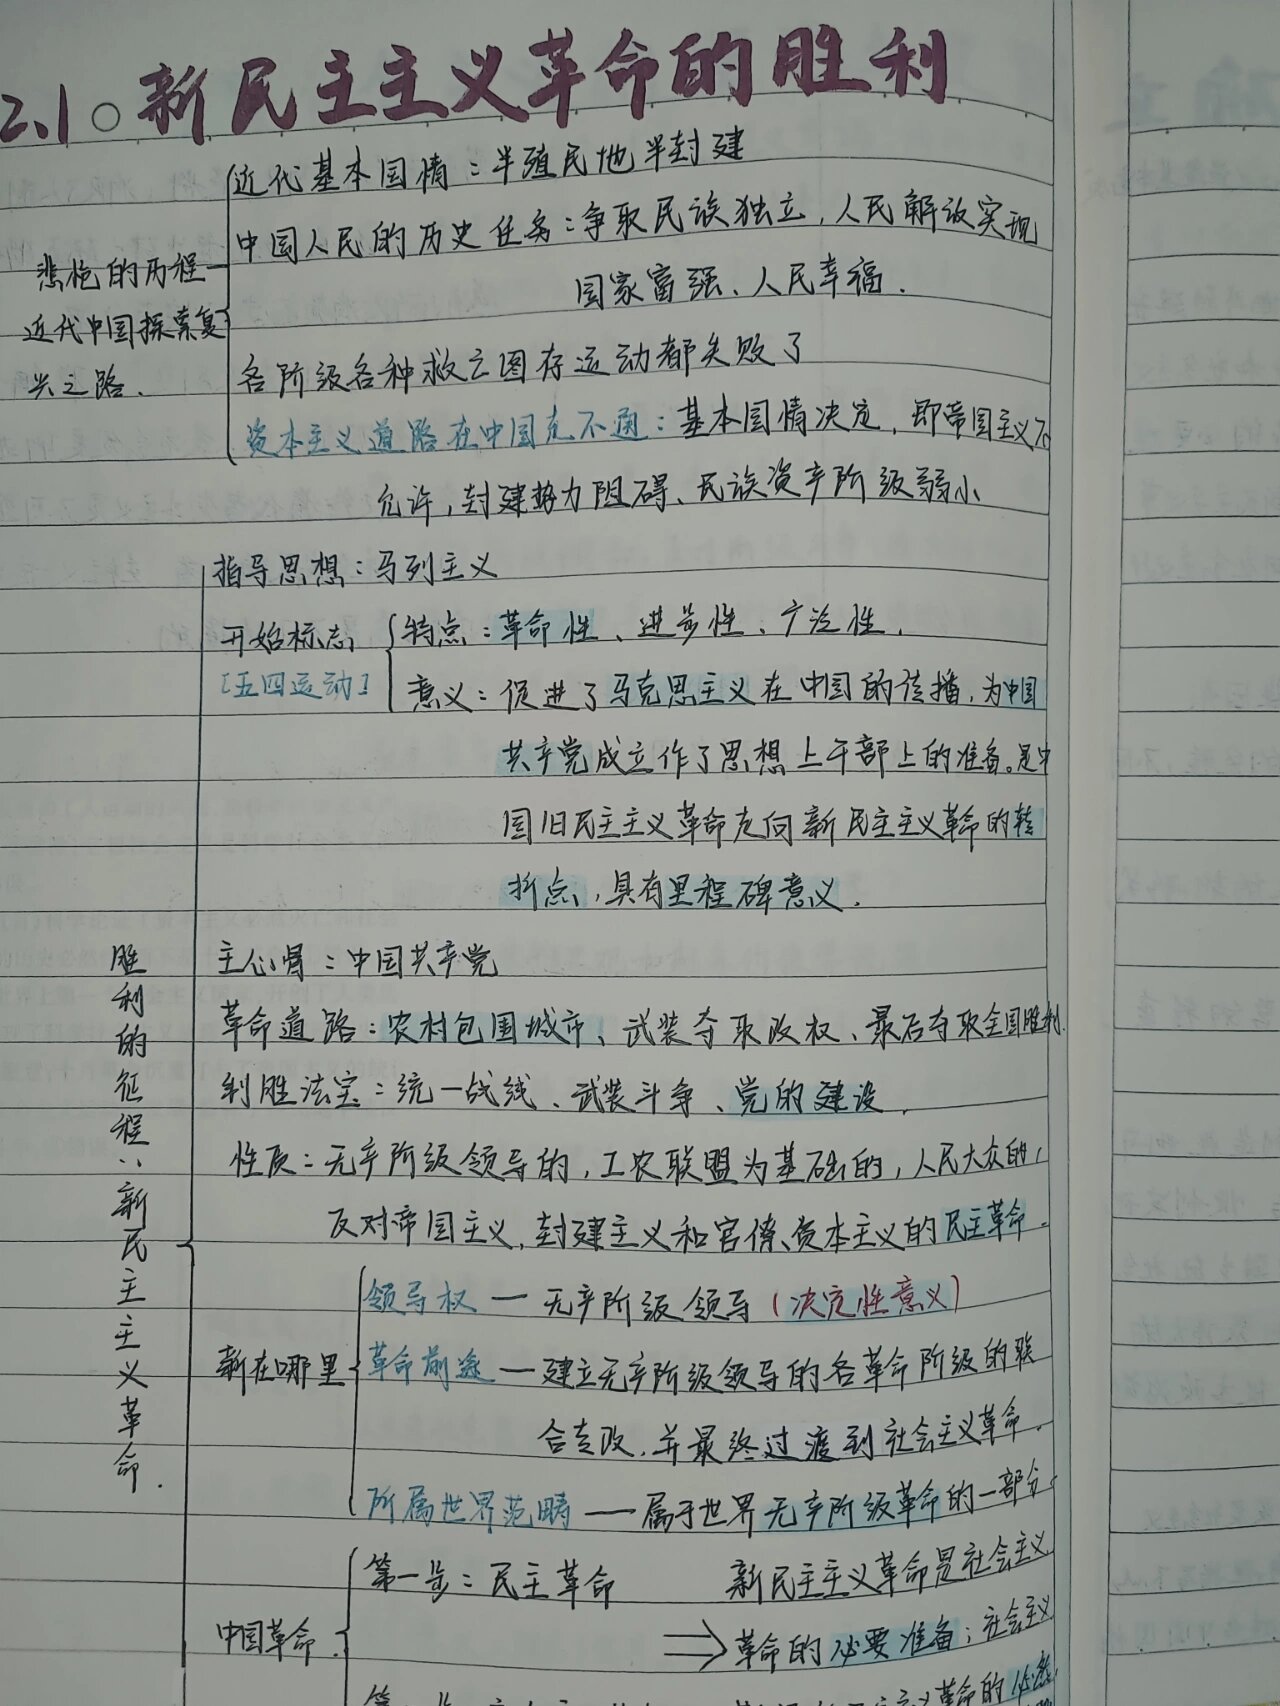 2.1。新民主主义革命的胜利
近代基本国情：半殖民地半封建
中国人民的历史任务：争取民族独立，人民解放实现
国家富强、人民幸福．
悲怆的历程—
近代中国探索复
兴之路．
各阶级各种救亡图存运动都失败了
资本主义道路在中国走不通：基本国情决定，即帝国主义不
允许，封建势力阻碍、民族资产阶级弱小
指导思想：马列主义
开始标志
[五四运动]
特点：革命性、进步性、广泛性．
意义：促进了马克思主义在中国的传播，为中国
共产党成立作了思想上干部上的准备。是中
国旧民主主义革命走向新民主主义革命的转
折点，具有里程碑意义．
主心骨：中国共产党
革命道路：农村包围城市、武装夺取政权、最后夺取全国胜利．
利胜法宝：统一战线、武装斗争、党的建设．
性质：无产阶级领导的，工农联盟为基础的，人民大众的，
反对帝国主义，封建主义和官僚、资本主义的民主革命．
胜利的征程：新民主主义革命．
新在哪里
领导权—无产阶级领导（决定性意义）
革命前途—建立无产阶级领导的各革命阶级的联
合专政，并最终过渡到社会主义革命．
所属世界范畴—属于世界无产阶级革命的一部分．
中国革命．
第一步：民主革命
新民主主义革命是社会主义
⇒革命的必要准备；社会主义